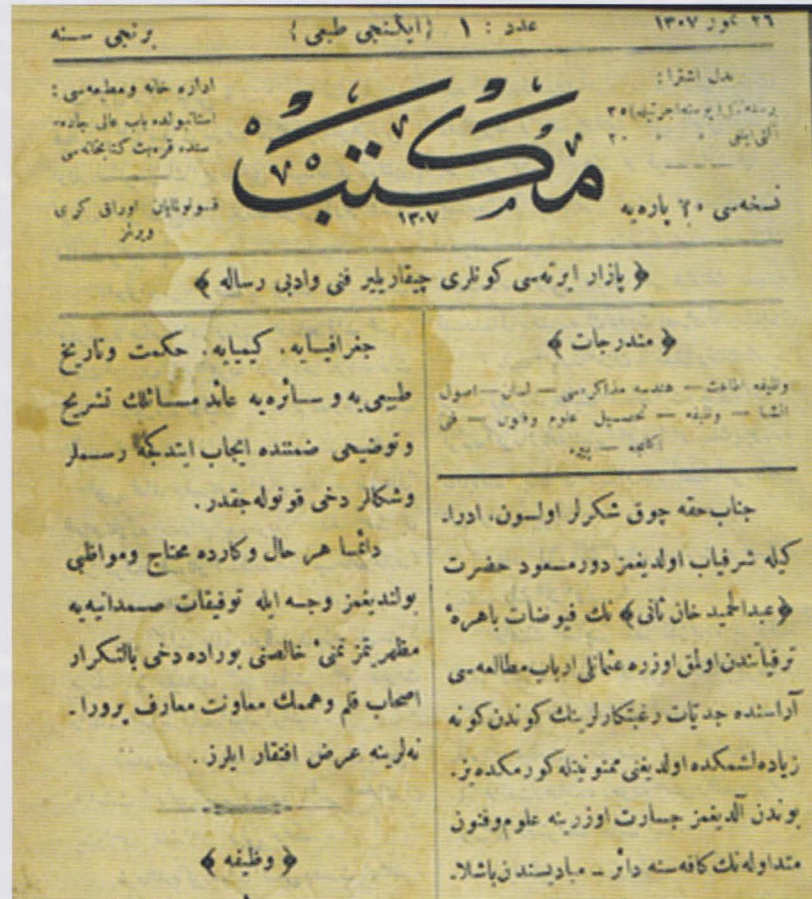 ٢٦ تموز ١٣٠٧
عدد : ١ (ایکنجی طبعی)
برنجی سنه
بدل اشترا :
نسخه‌سی ٢٠ پاره‌یه
مکتب
١٣٠٧
اداره خانه ومطبعه‌سی :
استانبولده باب عالی جاده‌
سنده قره‌بت کتابخانه‌سی
قبول اولنمیان اوراق کری
ویرلمز
﴿ پازار ایرته‌سی کونلری چیقاریلیر فنی وادبی رساله ﴾
﴿ مندرجات ﴾
وظیفه اطاعت — هندسه مذاکره‌سی — لسان — اصول
انشا — وظیفه — تحصیل علوم وفنون — فنی
اکلنجه —
جناب حقه چوق شکرلر اولسون، ادرا‌
کیله شرفیاب اولدیغمز دور مسعود حضرت
﴿ عبدالحمید خان ثانی ﴾ نك فیوضات باهرهٔ
ترقیاتندن اولمق اوزره عثمانلی ارباب مطالعه‌سی
آراسنده جدیات رغبتکارلرینك کوندن کونه
زیاده‌لشمکده اولدیغنی ممنونیتله کورمکده‌یز.
بوندن آلدیغمز جسارت اوزرینه علوم وفنون
متداوله‌نك کافه‌سنه دائر — مبادیسندن باشلا‌
جغرافیایه، کیمیایه، حکمت وتاریخ
طبیعی‌یه و سائره‌یه عائد مسائلك تشریح
وتوضیحی ضمننده ایجاب ایتدکجه رسملر
وشکللر دخی قونوله‌جقدر.
دائما هر حال وکارده محتاج ومواظبی
بولندیغمز وجه ایله توفیقات صمدانیه‌یه
مظهریتمز تمنیٔ خالصنی بوراده دخی بالتکرار
اصحاب قلم وهممك معاونت معارف پرورا‌
نه‌لرینه عرض افتقار ایلرز.
﴿ وظیفه ﴾